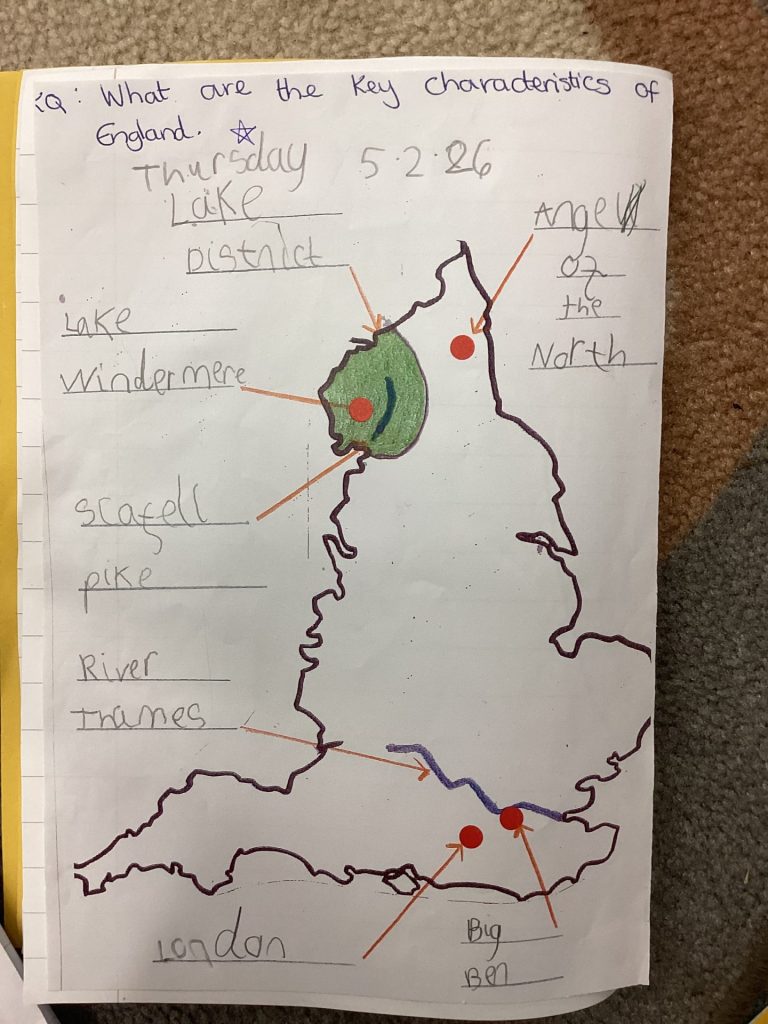 LQ: What are the Key characteristics of
England.
Thursday 5.2.26
Lake
District
Angel
Of
the
North
Lake
Windermere
Scafell
pike
River
Thames
London
Big
Ben